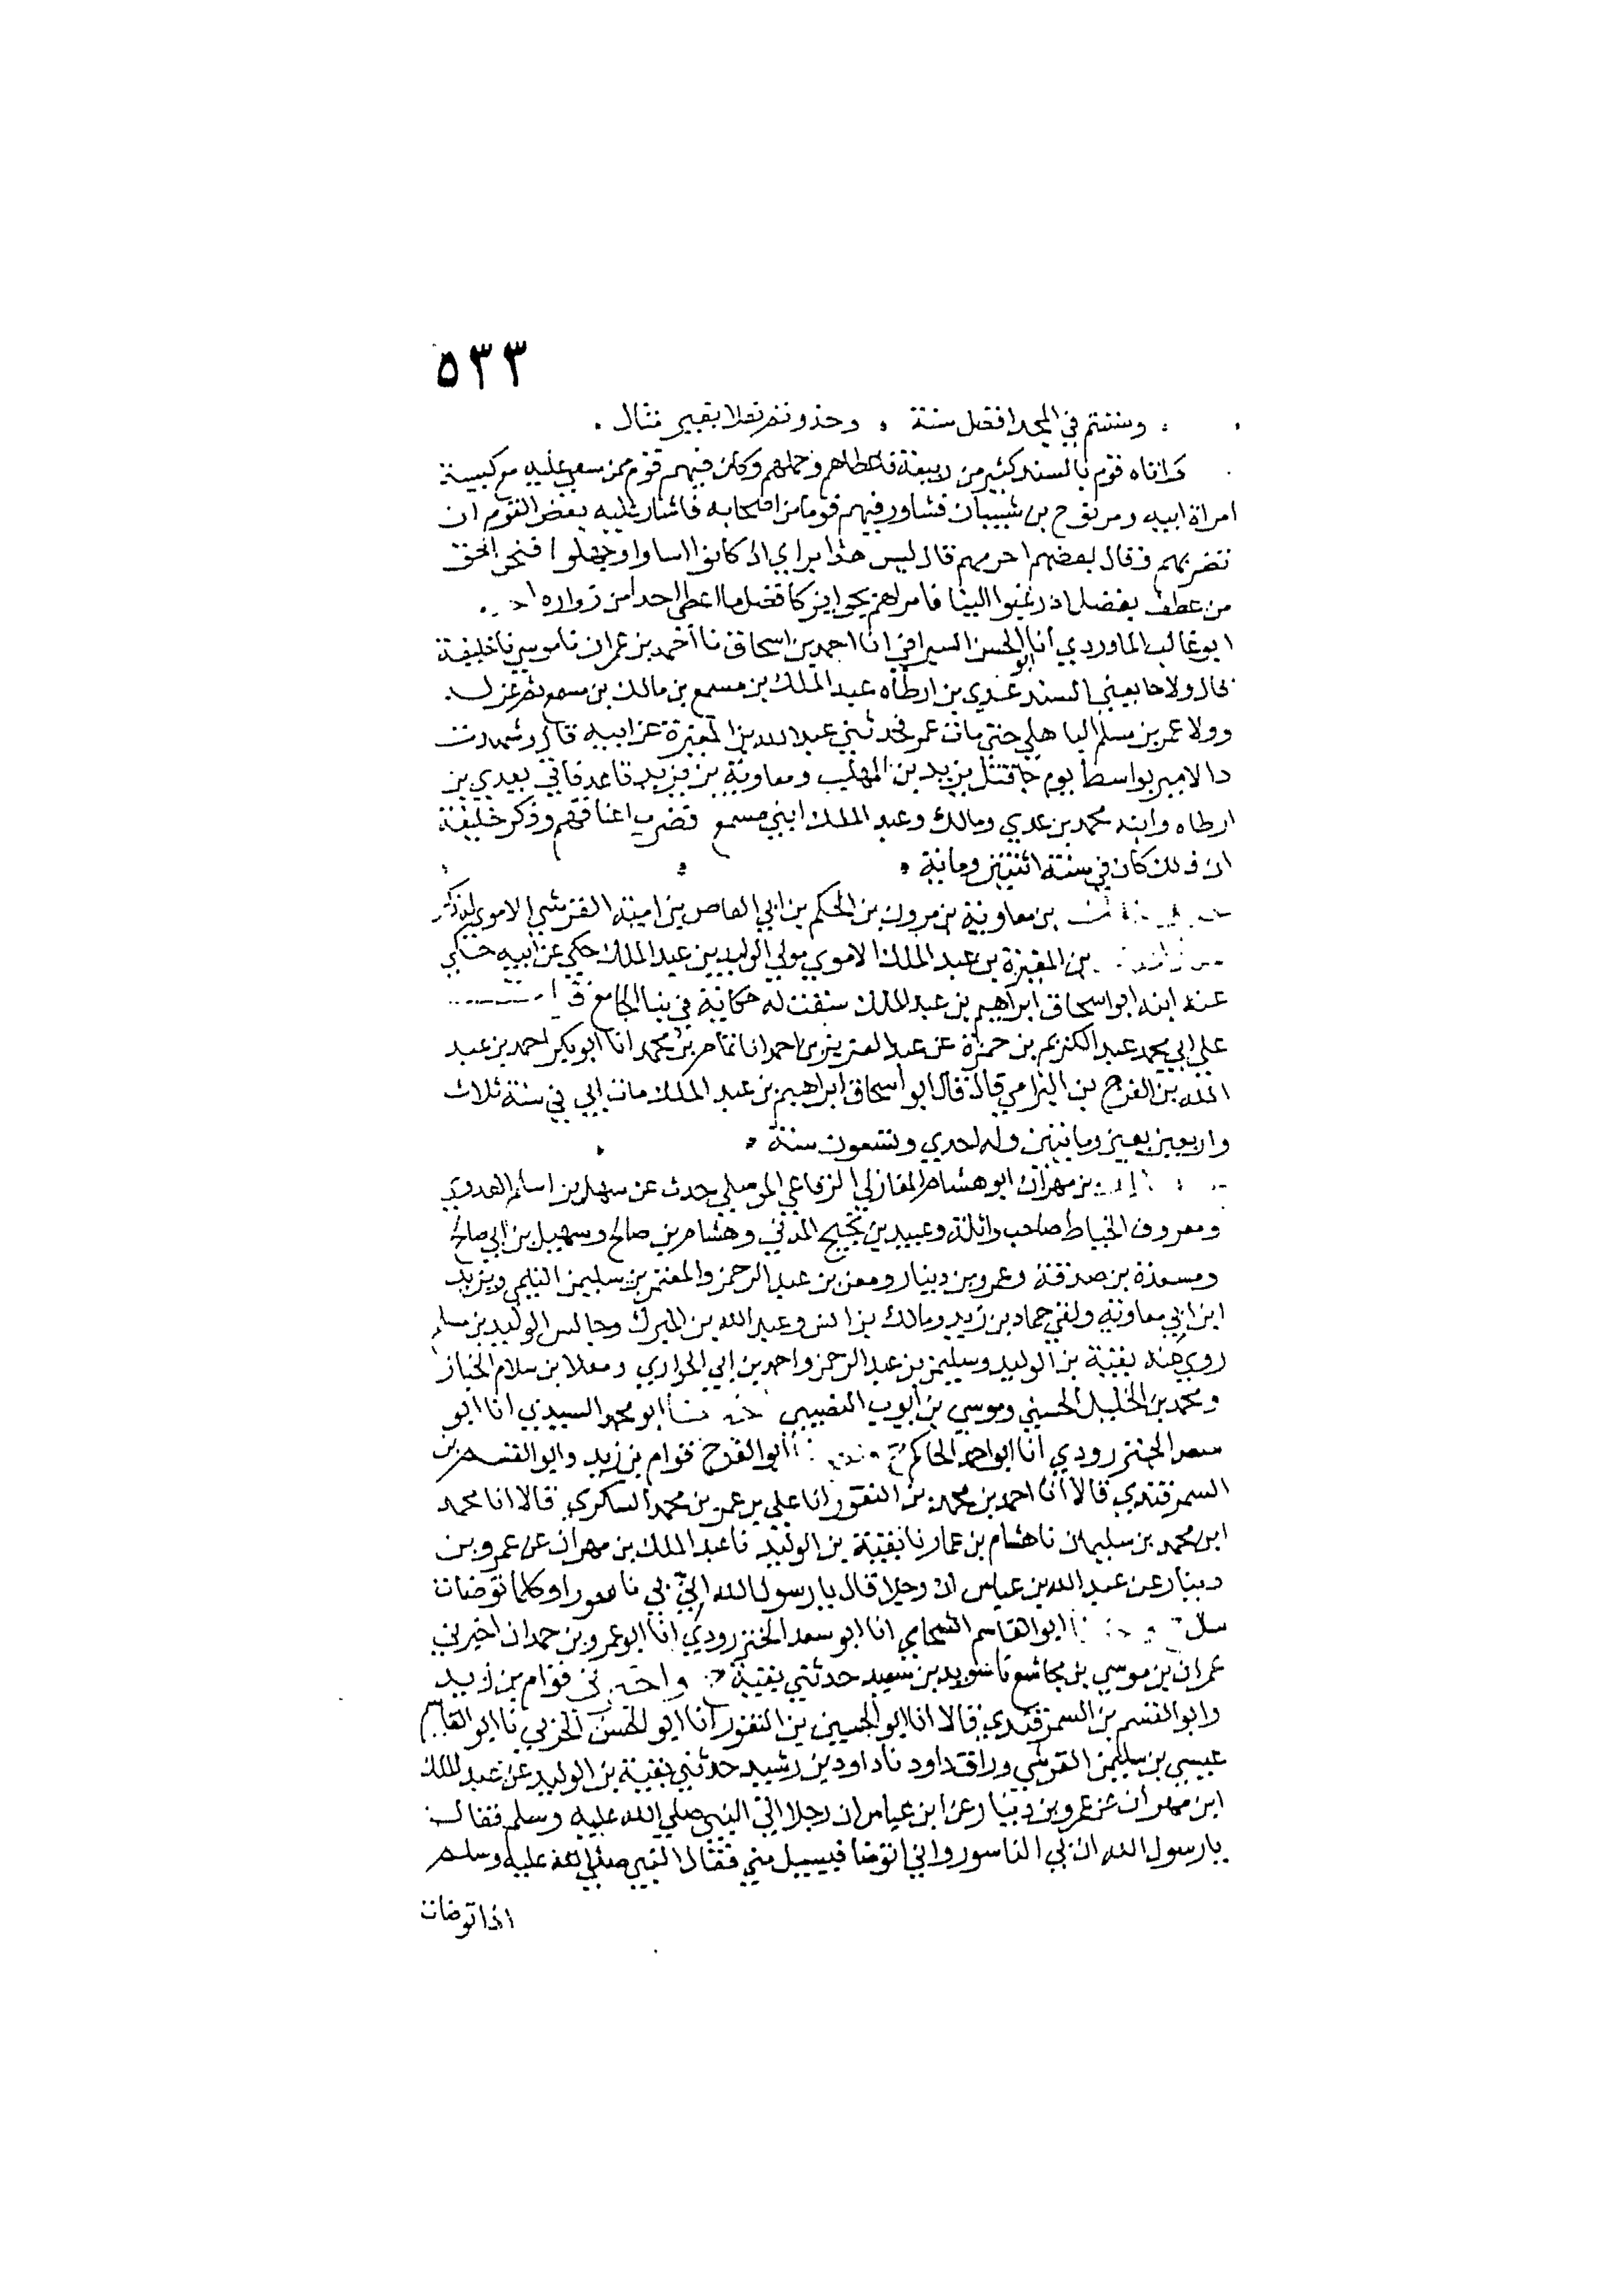 ٥٣٣
وسننتم في المجد افضل سنة وحذوتم نعلا بقبير مثال
واتاه قوم بالسند كثير من ربيعة فاعطاهم وحملهم وكان فيهم قوم ممن سعى عليه مع كبيسة
امراة ابيه ومر بنوح بن شيبان فشاور فيهم قوما من اصحابه فاشار عليه بعض القوم ان
تضربهم وقال بعضهم احرمهم قال ليس هذا براي ان كانوا اساوا وجهلوا فنحن احق
من عطف بفضل اذ رغبوا الينا فامر لهم بجوايز كافضل ما اعطى احدا من زواره
ابو غالب الماوردي انا ابو الحسن السيرافي انا احمد بن اسحاق نا احمد بن عمران نا موسى نا خليفة
قال ولاها يعني السند عدي بن ارطاه عبد الملك بن مسمع بن مالك بن مسمع ثم عزله
وولا عمر بن مسلم الباهلي حتى مات عمر فحدثني عبد الله بن المغيرة عن ابيه قال وشهدت
دار الامير بواسط يوم جا قتل يزيد بن المهلب ومعاوية بن يزيد قاعد فاتي بعدي بن
ارطاه وابنه محمد بن عدي ومالك وعبد الملك ابني مسمع فضرب اعناقهم وذكر خليفة
ان ذلك كان في سنة اثنتين ومائة
بن معاوية بن مروان بن الحكم بن ابي العاص بن امية القرشي الاموي له ذكر
بن المغيرة بن عبد الملك الاموي مولى الوليد بن عبد الملك حكى عن ابيه حكى
عنه ابنه ابو اسحاق ابراهيم بن عبد الملك سقت له حكاية في بنا الجامع
على ابي محمد عبد الكريم بن حمزة عن عبد العزيز بن احمد انا تمام بن محمد انا ابو بكر احمد بن عبد
الله بن الفرج بن البرامي قال قال ابو اسحاق ابراهيم بن عبد الملك مات ابي في سنة ثلاث
واربعين يعني ومايتين وله احدي وتسعون سنة
بن مهران ابو هشام المغازلي الرفاعي الموصلي حدث عن سهل بن اسلم العدوي
ومعروف الخياط صاحب واثلة وعبيد بن نجيح المدني وهشام بن صالح وسهيل بن ابي صالح
ومسعدة بن صدقة وعمرو بن دينار ومعن بن عبد الرحمن والمعتمر بن سليمن التيمي ويزيد
ابن ابي معاوية ولقي حماد بن زيد ومالك بن انس وعبد الله بن المبرك وجالس الوليد بن مسلم
روى عنه بقية بن الوليد وسليمن بن عبد الرحمن واحمد بن ابي الحواري ومعلا بن سلام الخباز
ومحمد بن الخليل الحسيني وموسى بن ايوب النصيبي ابو محمد السيدي انا ابو
سعد الجنزرودي انا ابو احمد الحاكم ح ابو الفرج قوام بن زيد وابو القسم بن
السمرقندي قالا انا احمد بن محمد بن النقور انا علي بن عمر بن محمد السكري قالا انا محمد
ابن محمد بن سليمان نا هشام بن عمار نا بقية بن الوليد نا عبد الملك بن مهران عن عمرو بن
دينار عن عبد الله بن عباس ان رجلا قال يا رسول الله اني بي ناسورا وكلما توضات
سال ابو القاسم الشحامي انا ابو سعد الجنزرودي انا ابو عمرو بن حمدان اخبرني
عمران بن موسى بن مجاشع نا سويد بن سعيد حدثني بقية ح قوام بن زيد
وابو القسم بن السمرقندي قالا انا ابو الحسين بن النقور انا ابو الحسن الحربي نا ابو القاسم
عيسى بن سليمن القرشي وراق داود نا داود بن رشيد حدثني بقية بن الوليد عن عبد الملك
ابن مهران عن عمرو بن دينار عن ابن عباس ان رجلا اتى النبي صلي الله عليه وسلم فقال
يا رسول الله ان بي الناسور واني اتوضا فيسيل مني فقال النبي صلي الله عليه وسلم
اذا توضات